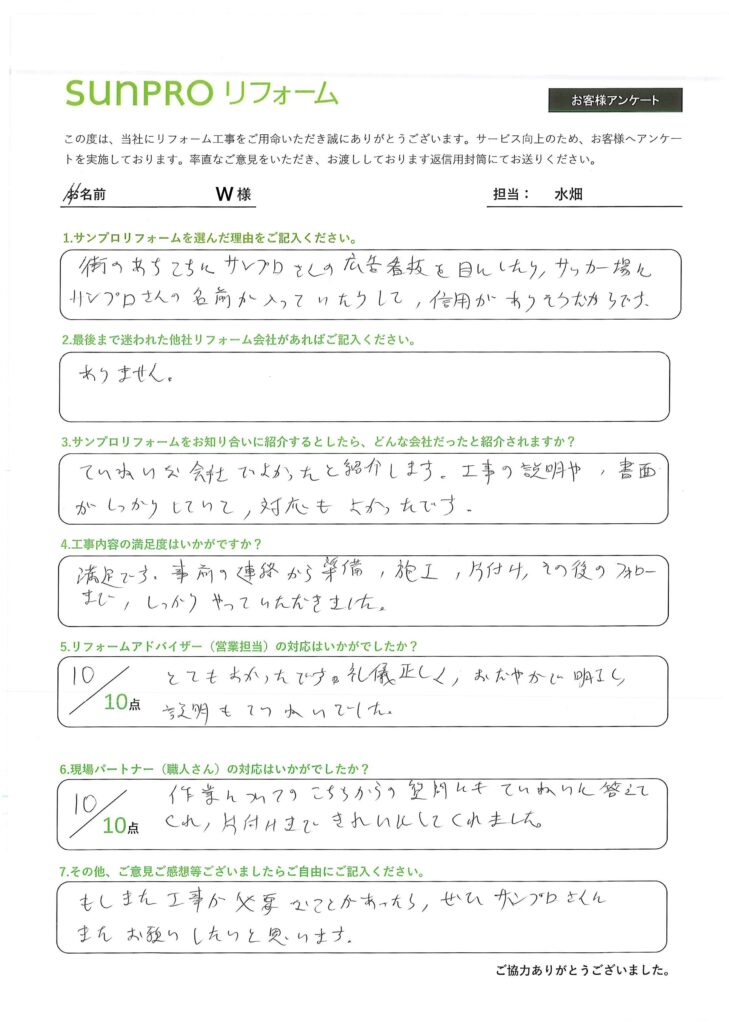 SUNPRO リフォーム
お客様アンケート
この度は、当社にリフォーム工事をご用命いただき誠にありがとうございます。サービス向上のため、お客様へアンケー
トを実施しております。率直なご意見をいただき、お渡ししております返信用封筒にてお送りください。
お名前 W 様 担当： 水畑
1.サンプロリフォームを選んだ理由をご記入ください。
街のあちこちにサンプロさんの広告看板を目にしたり,サッカー場に
サンプロさんの名前が入っていたりして,信用がありそうだからです.
2.最後まで迷われた他社リフォーム会社があればご記入ください。
ありません。
3.サンプロリフォームをお知り合いに紹介するとしたら、どんな会社だったと紹介されますか？
ていねいな会社でよかったと紹介します. 工事の説明や,書面
がしっかりしていて,対応もよかったです.
4.工事内容の満足度はいかがですか？
満足です. 事前の連絡から準備,施工,片付け,その後のフォロー
まで,しっかりやっていただきました。
5.リフォームアドバイザー（営業担当）の対応はいかがでしたか？
10/10点 とてもよかったです。礼儀正しく,おだやかで明るく
説明もていねいでした.
6.現場パートナー（職人さん）の対応はいかがでしたか？
10/10点 作業についてのこちらからの質問にもていねいに答えて
くれ,片付けまできれいにしてくれました。
7.その他、ご意見ご感想等ございましたらご自由にご記入ください。
もしまた工事が必要なことがあったら,ぜひサンプロさんに
またお願いしたいと思います.
ご協力ありがとうございました。